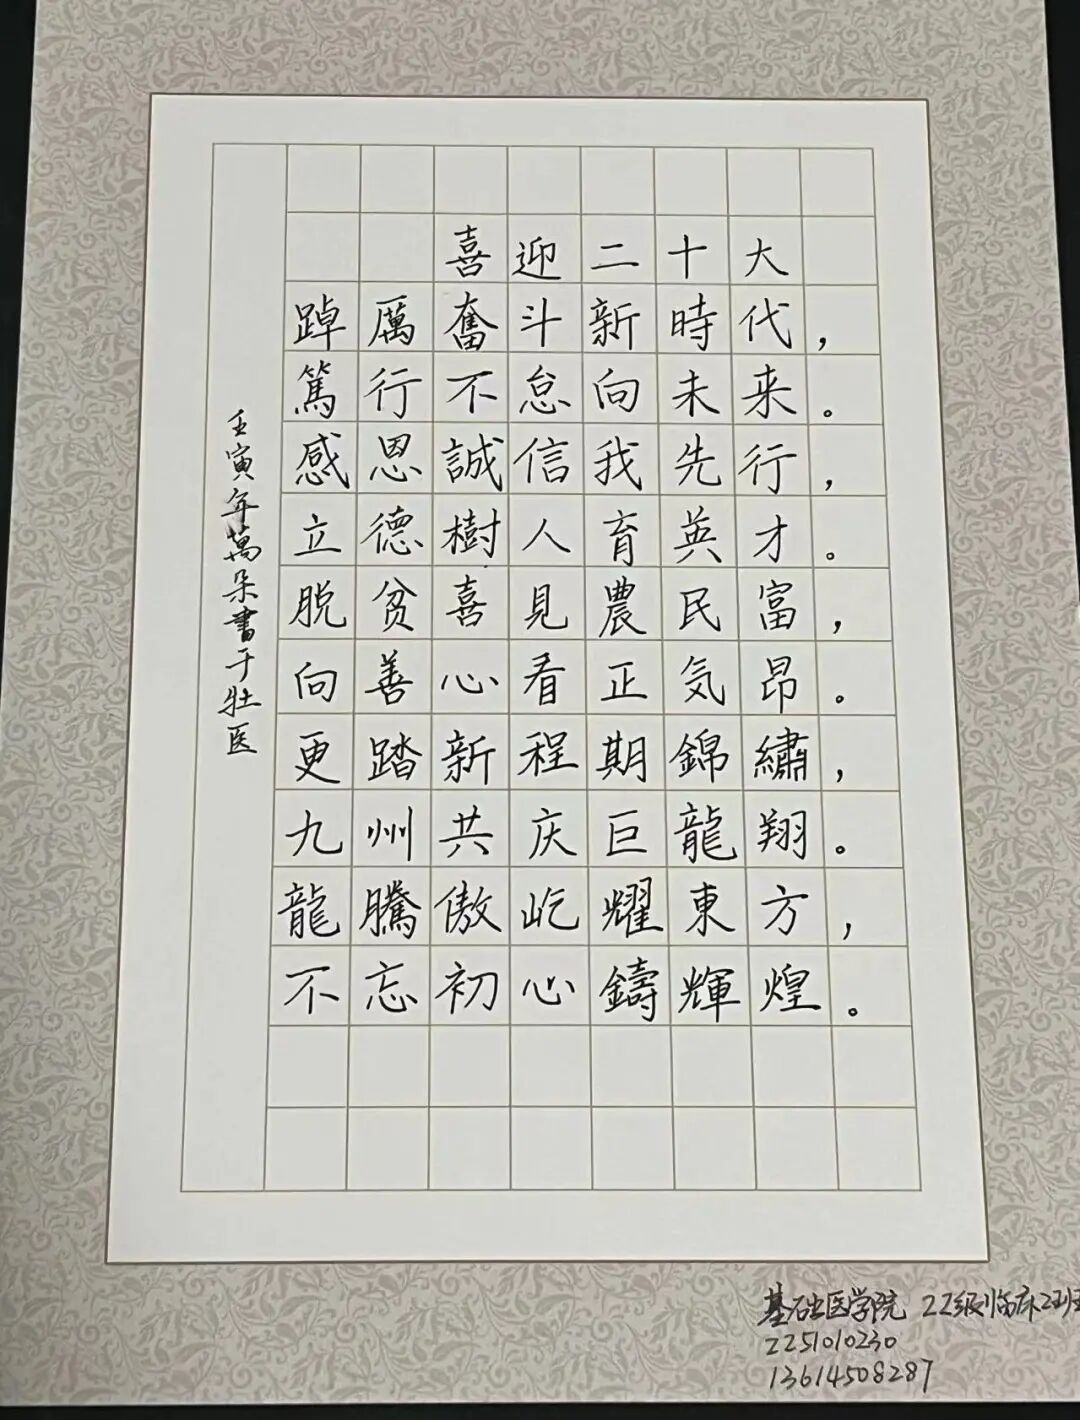 喜迎二十大
踔厲奮斗新時代，
篤行不怠向未来。
感恩誠信我先行，
立德樹人育英才。
脱贫喜見農民富，
向善心看正気昂。
更踏新程期錦繡，
九州共庆巨龍翔。
龍騰傲屹耀東方，
不忘初心鑄輝煌。
壬寅年萬朵書于牡医
基础医学院 22级临床2班
2251010230
13614508287